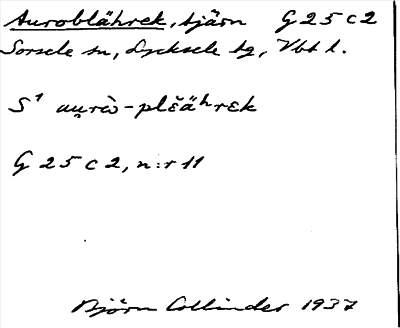 Auroblährek, tjärn G 25 c 2
Sorsele sn, Lycksele tg, Vbt l.
S¹ au̯rò-plĕäʰrɛk
G 25 c 2, n:r 11
Björn Collinder 1937